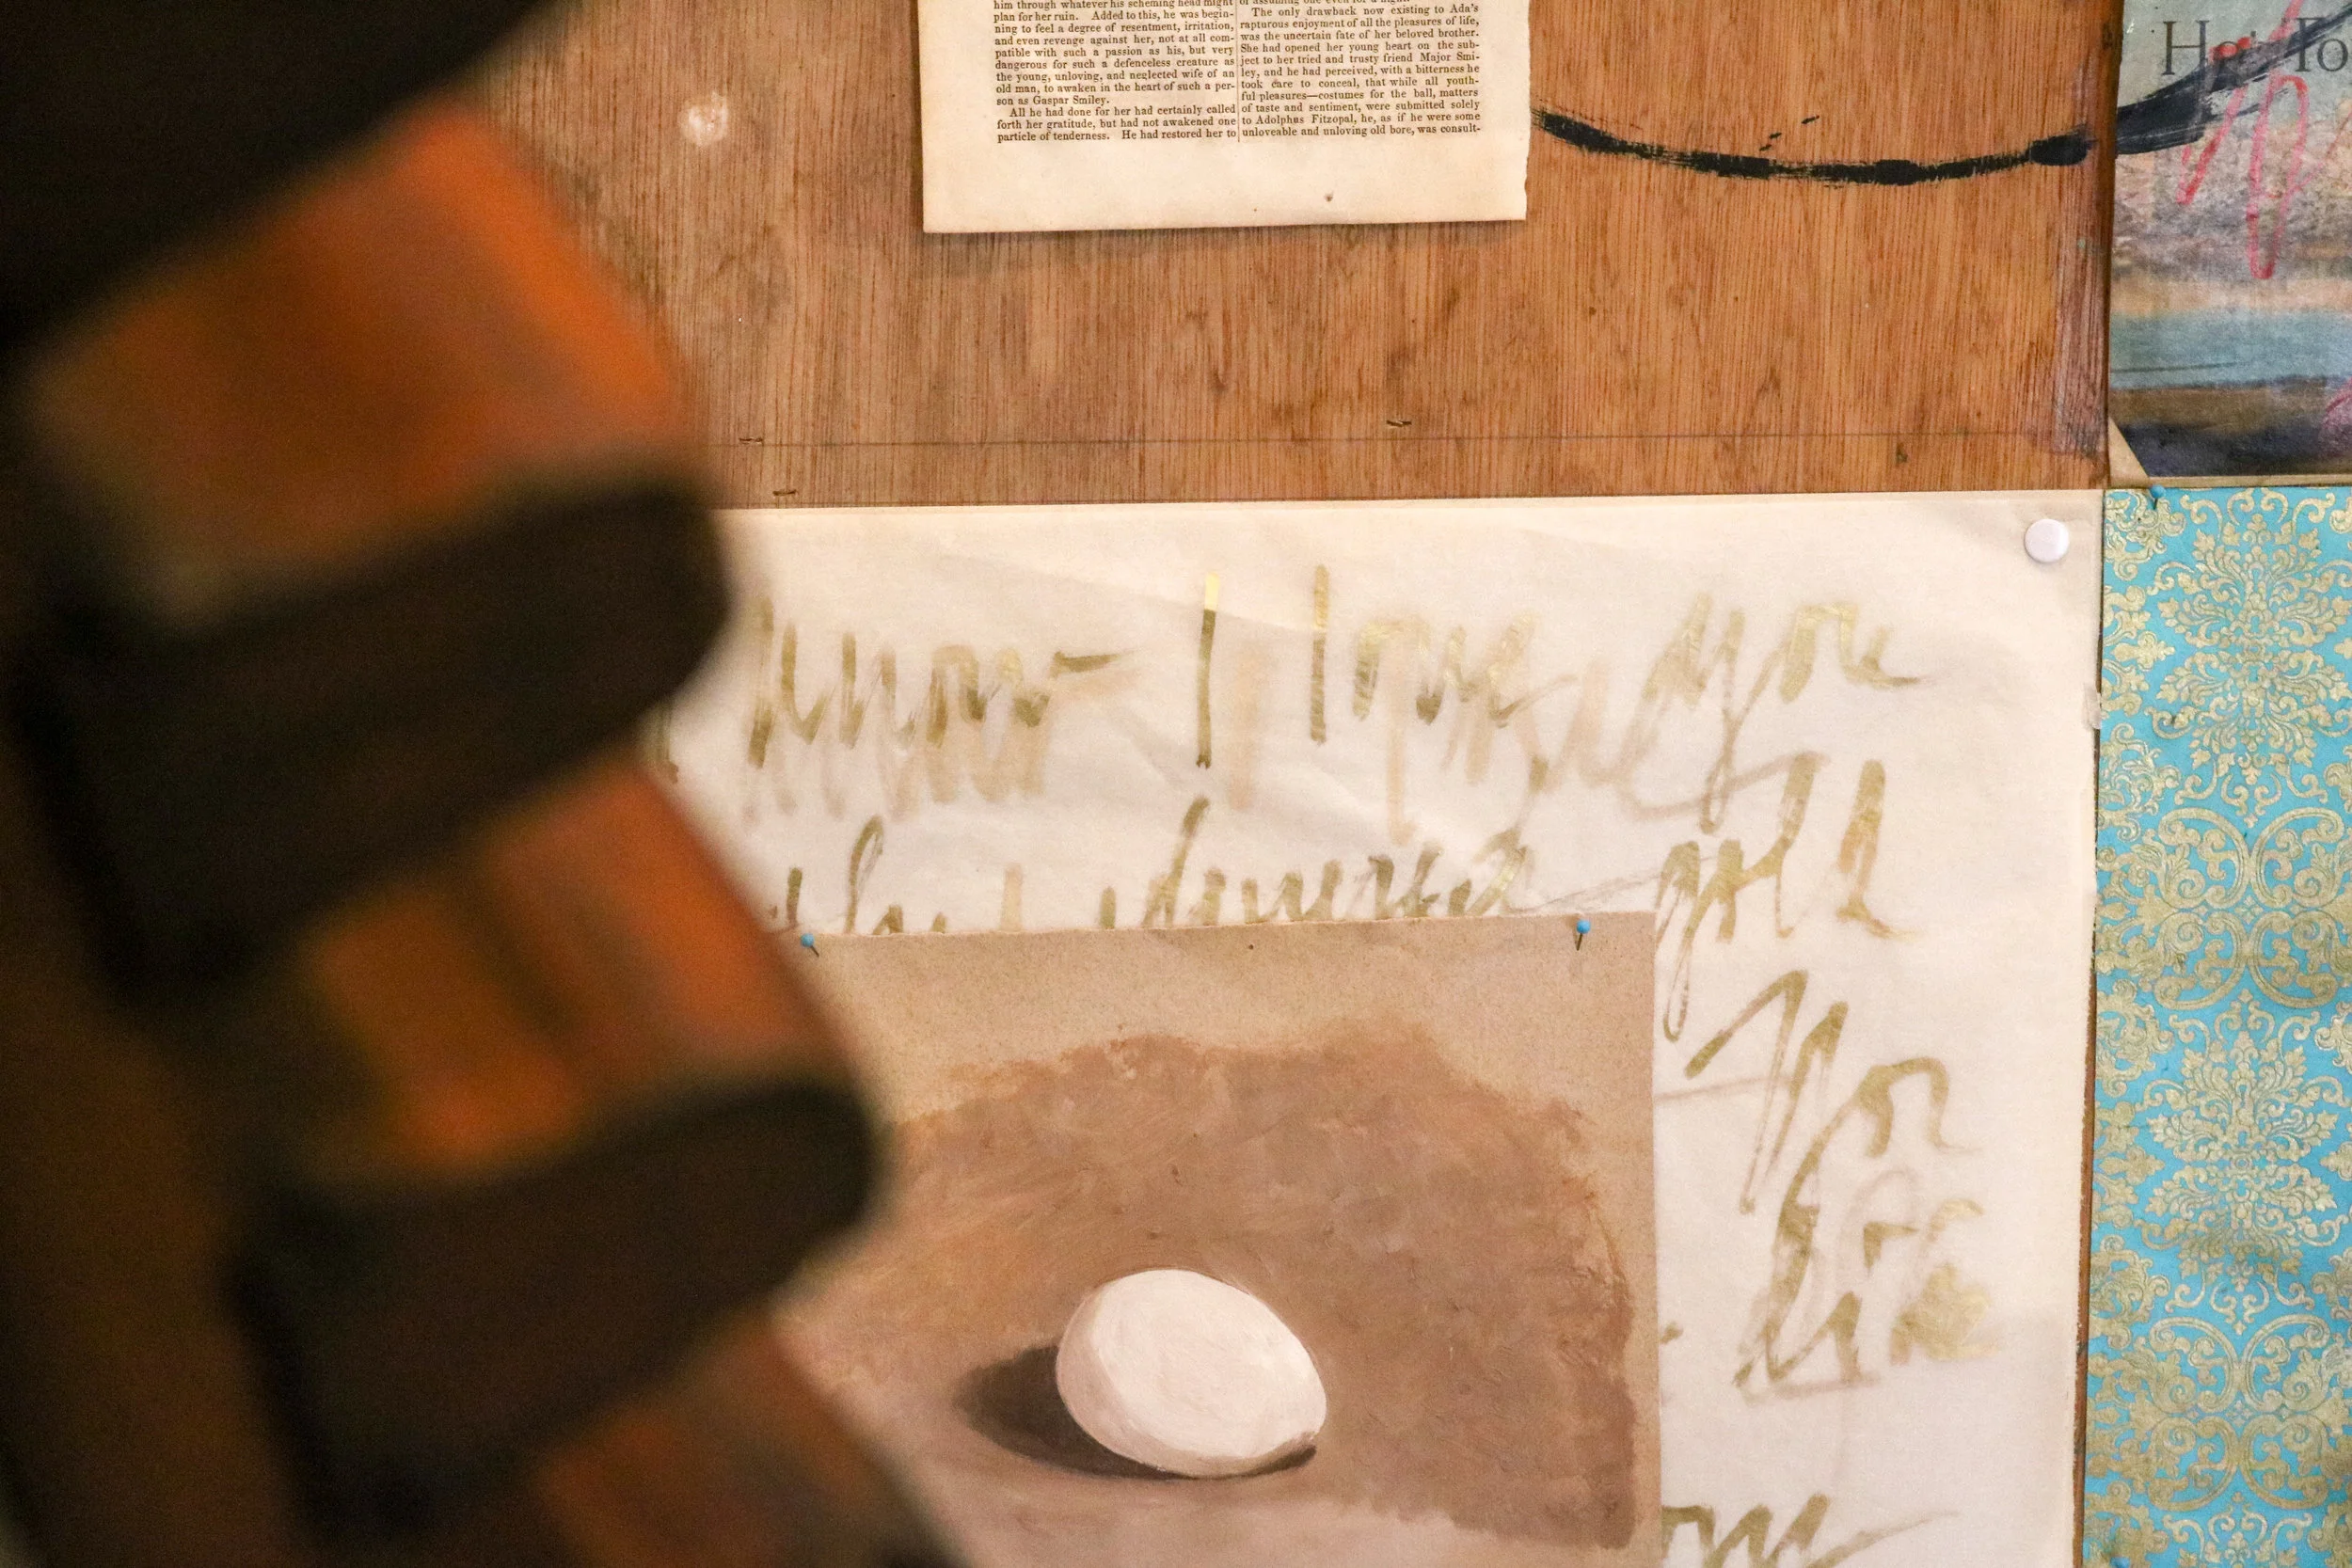 him through whatever his scheming head might
plan for her ruin. Added to this, he was begin-
ning to feel a degree of resentment, irritation,
and even revenge against her, not at all com-
patible with such a passion as his, but very
dangerous for such a defenceless creature as
the young, unloving, and neglected wife of an
old man, to awaken in the heart of such a per-
son as Gaspar Smiley.
All he had done for her had certainly called
forth her gratitude, but had not awakened one
particle of tenderness. He had restored her to
The only drawback now existing to Ada's
rapturous enjoyment of all the pleasures of life,
was the uncertain fate of her beloved brother.
She had opened her young heart on the sub-
ject to her tried and trusty friend Major Smi-
ley, and he had perceived, with a bitterness he
took care to conceal, that while all youth-
ful pleasures—costumes for the ball, matters
of taste and sentiment, were submitted solely
to Adolphus Fitzopal, he, as if he were some
unloveable and unloving old bore, was consult-
know I love you
gold